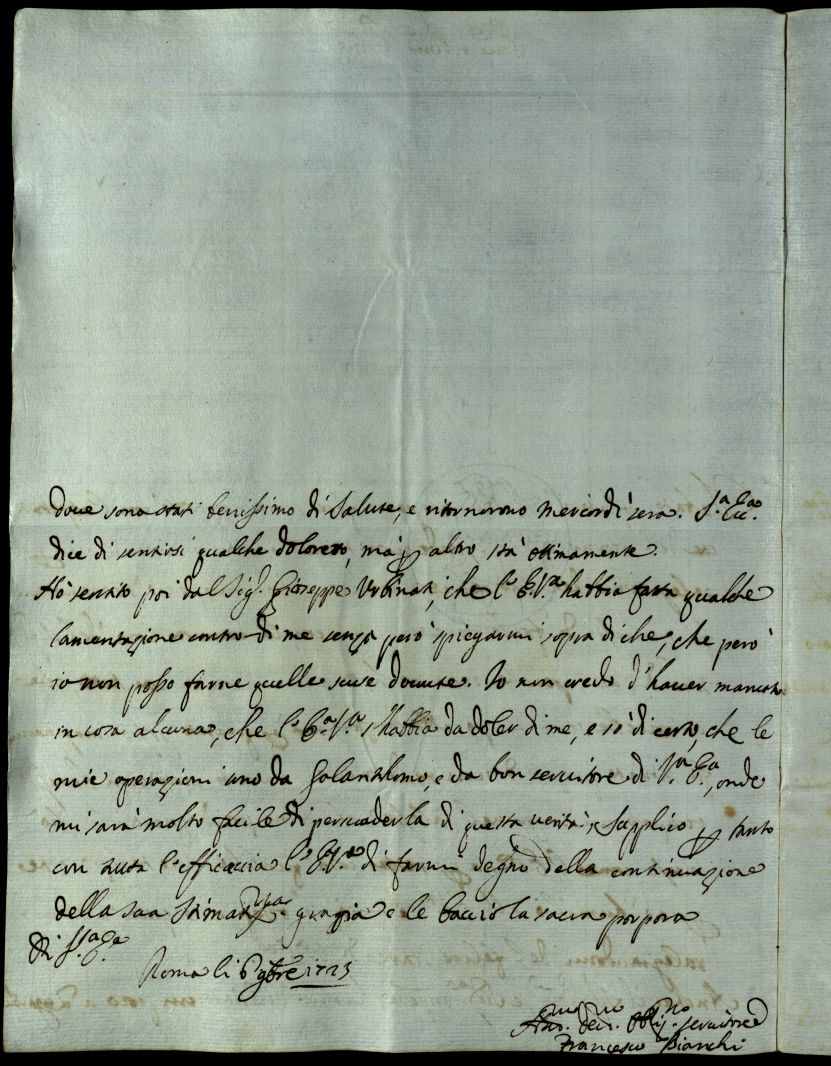 doue sono stati benissimo di salute, e ritornorono Mercordì sera. S.a Ecc.a
dice di sentirsi qualche doloretto, mà p altro stà ottimamente.
Hò sentito poi dal Sig.r Gioseppe Vrbinati, che l'E.V.a habbia fatta qualche
lamentazione contro di me senza però spiegarmi sopra di che, che però
io non posso farne quelle scuse douute. Io non credo d'hauer mancato
in cosa alcuna, che l'E.a V.a s'habbia da doler di me, e sò di certo, che le
mie operazioni sono da Galantuomo, e da bon seruitore di V.ra E.a, onde
mi sarà molto facile di persuaderla di questa verità; Supplico p tanto
con tutta l'efficaccia l'E.V.a di farmi degno della continuazione
della sua stimatiss.ma grazia e le baccio la sacra porpora
Di V.a E.a
Roma li 6 9bre 1723
Hum.mo deu.mo Obblig.mo seruitore
Francesco Bianchi